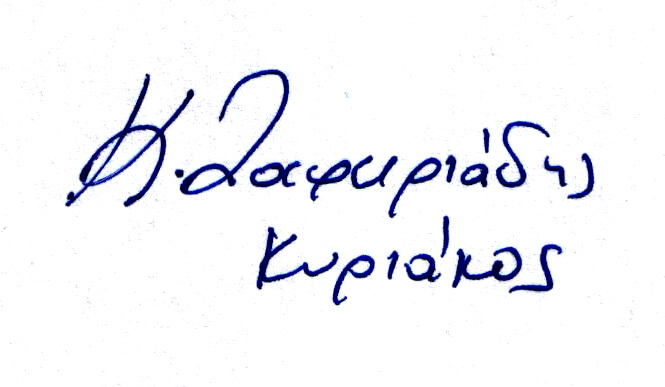 Κ. Ζαφειριάδης
Κυριάκος